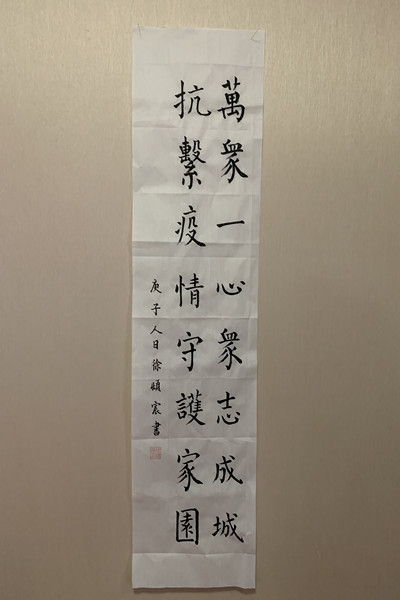 萬衆一心衆志成城
抗繫疫情守護家園
庚子人日徐順宸書